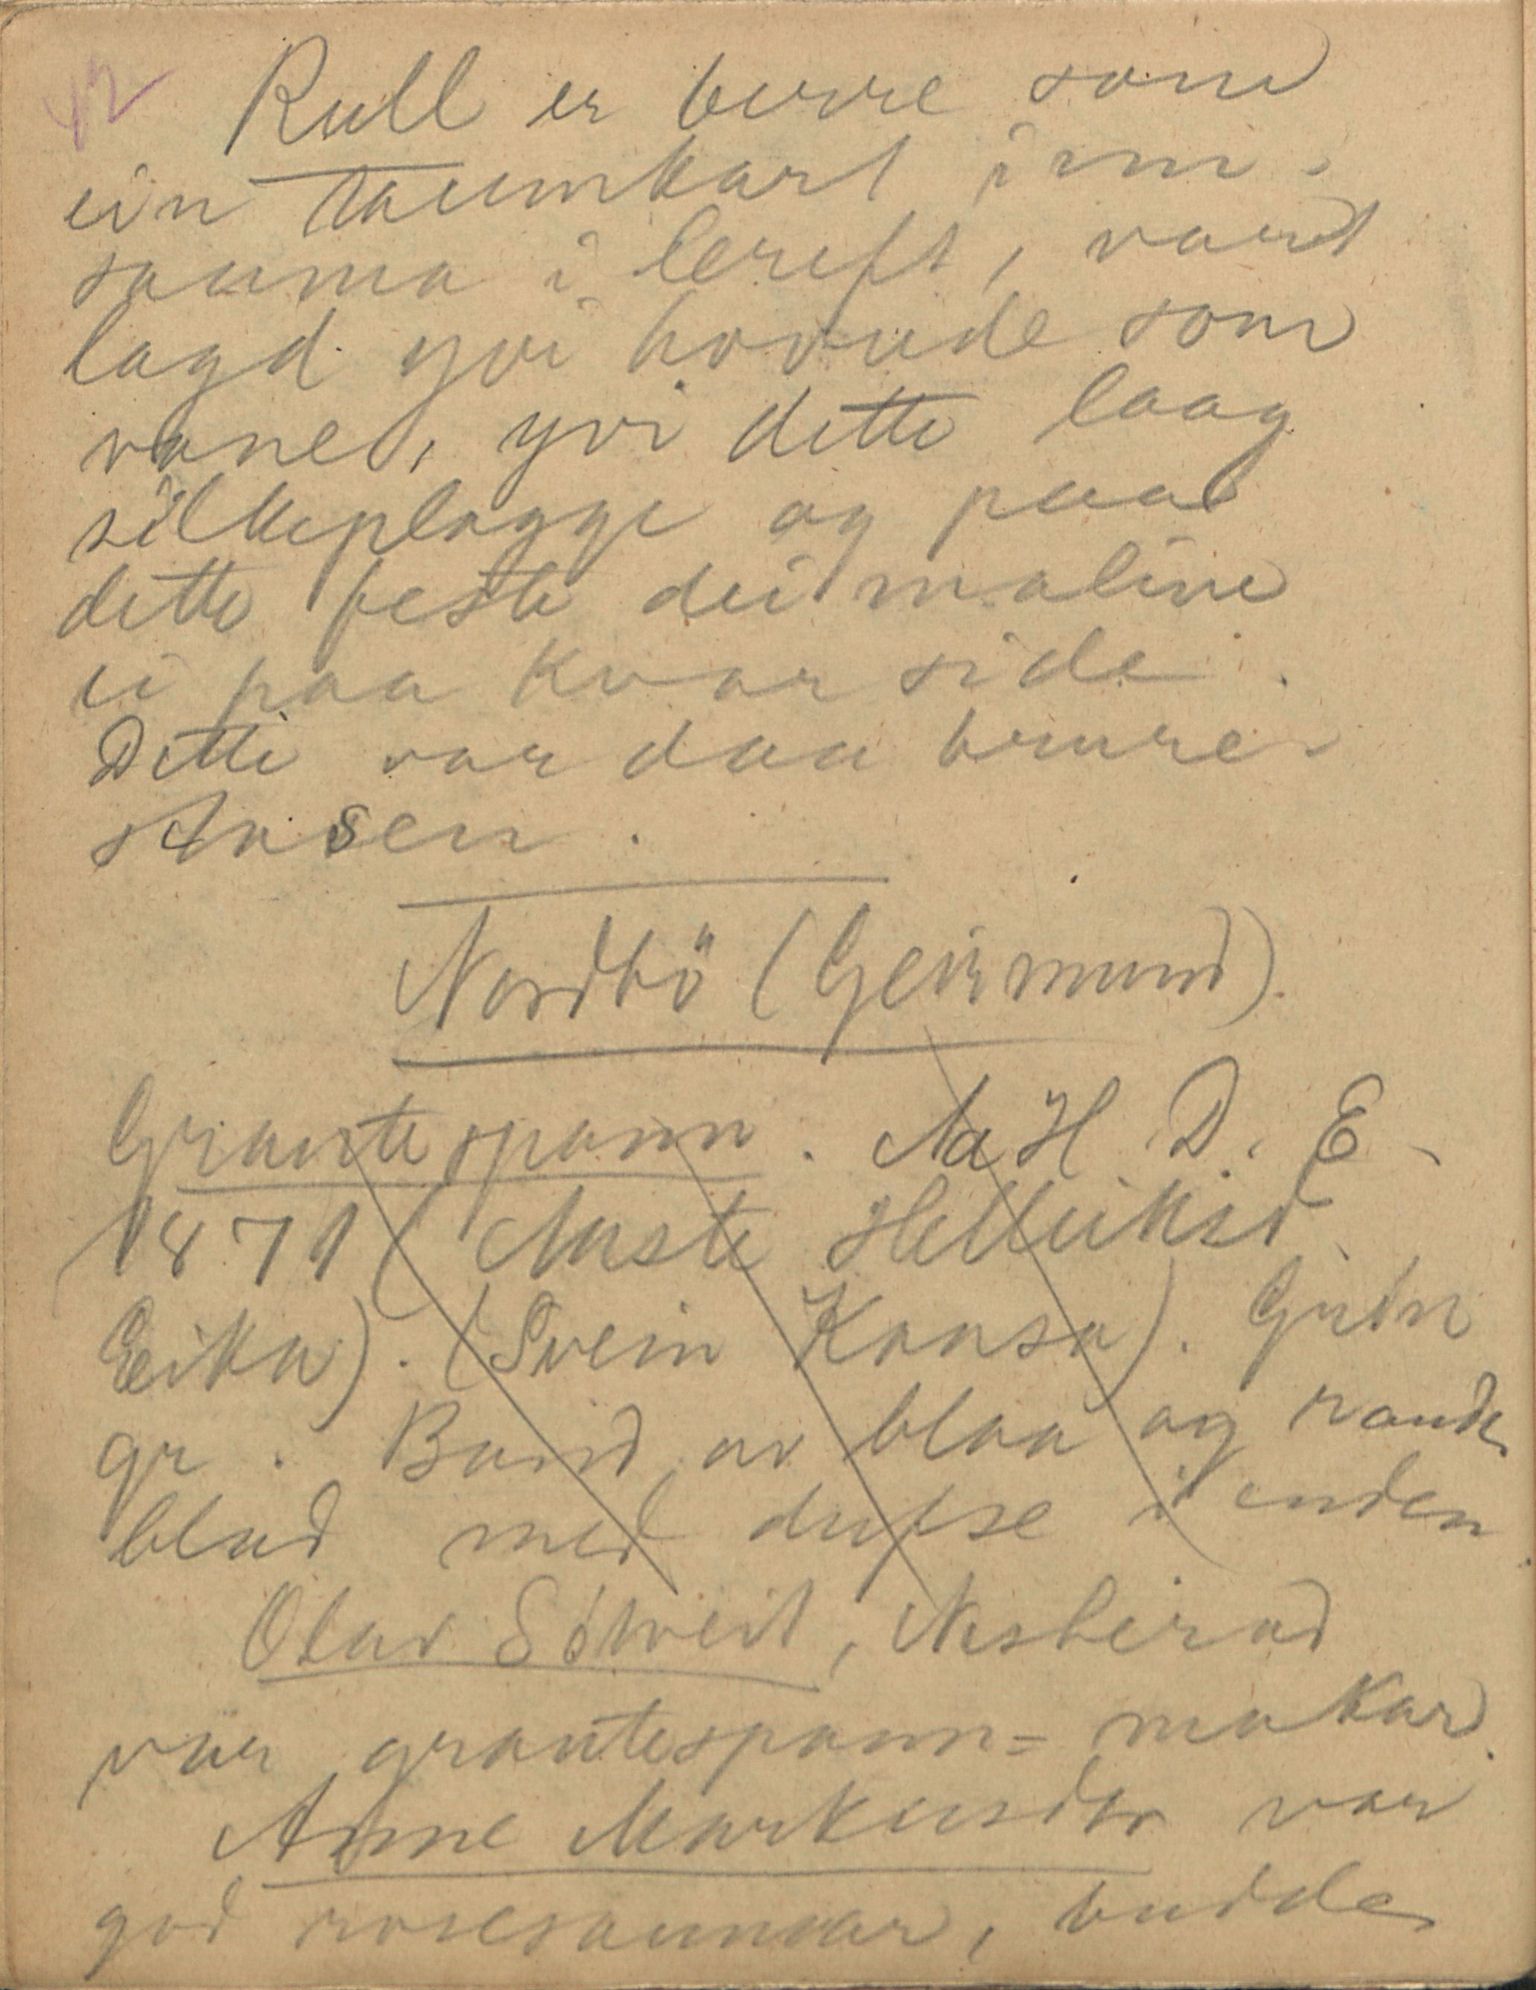 42
Rull er berre som
ein taumkarl inn-
sauma i lereft, vart
lagd yvi hovude som
vanel, yvi dette laag
silkeplagge og paa
dette feste dei maline
ei paa kvar side.
Dette var daa brure-
stasen.
Nordbö (Geirmund).
Grautespann. Aa H. D. E.
1871 (Aaste Helleiksd
Eika). (Svein Kaasa). Grön
gr. Band av blaa og raude
blad med dufse i enden
Olav Sötveit, Nesherad
var grautespann=makar.
Anne Markusdtr var
god rosesaumar, budde